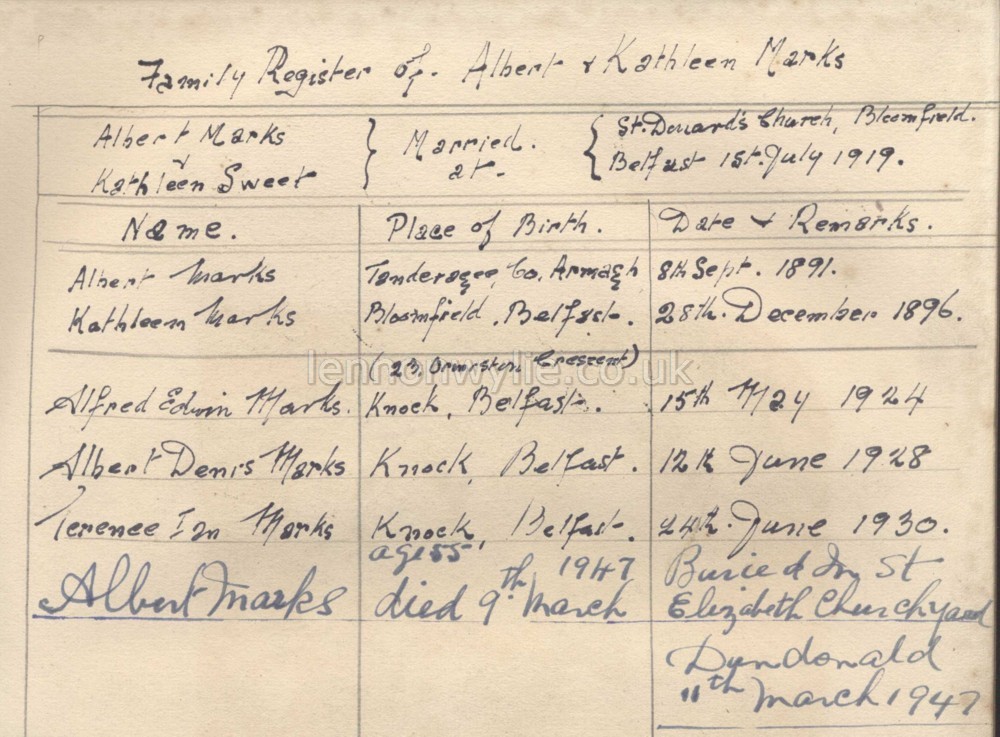 Family Register of. Albert & Kathleen Marks
Albert Marks
&
Kathleen Sweet
Married.
at.
St. Donard's Church, Bloomfield.
Belfast 1st. July 1919.
Name. Place of Birth. Date & Remarks.
Albert Marks Tanderagee, Co. Armagh 8th Sept. 1891.
Kathleen Marks Bloomfield, Belfast. 28th. December 1896.
(23, Ormiston Crescent)
lennonwylie.co.uk
Alfred Edwin Marks. Knock, Belfast. 15th May 1924
Albert Denis Marks Knock, Belfast. 12th June 1928
Terence Ian Marks Knock, Belfast. 24th. June 1930.
age 55
Albert Marks died 9th March 1947 Buried In St
Elizabeth Churchyard
Dundonald
11th March 1947